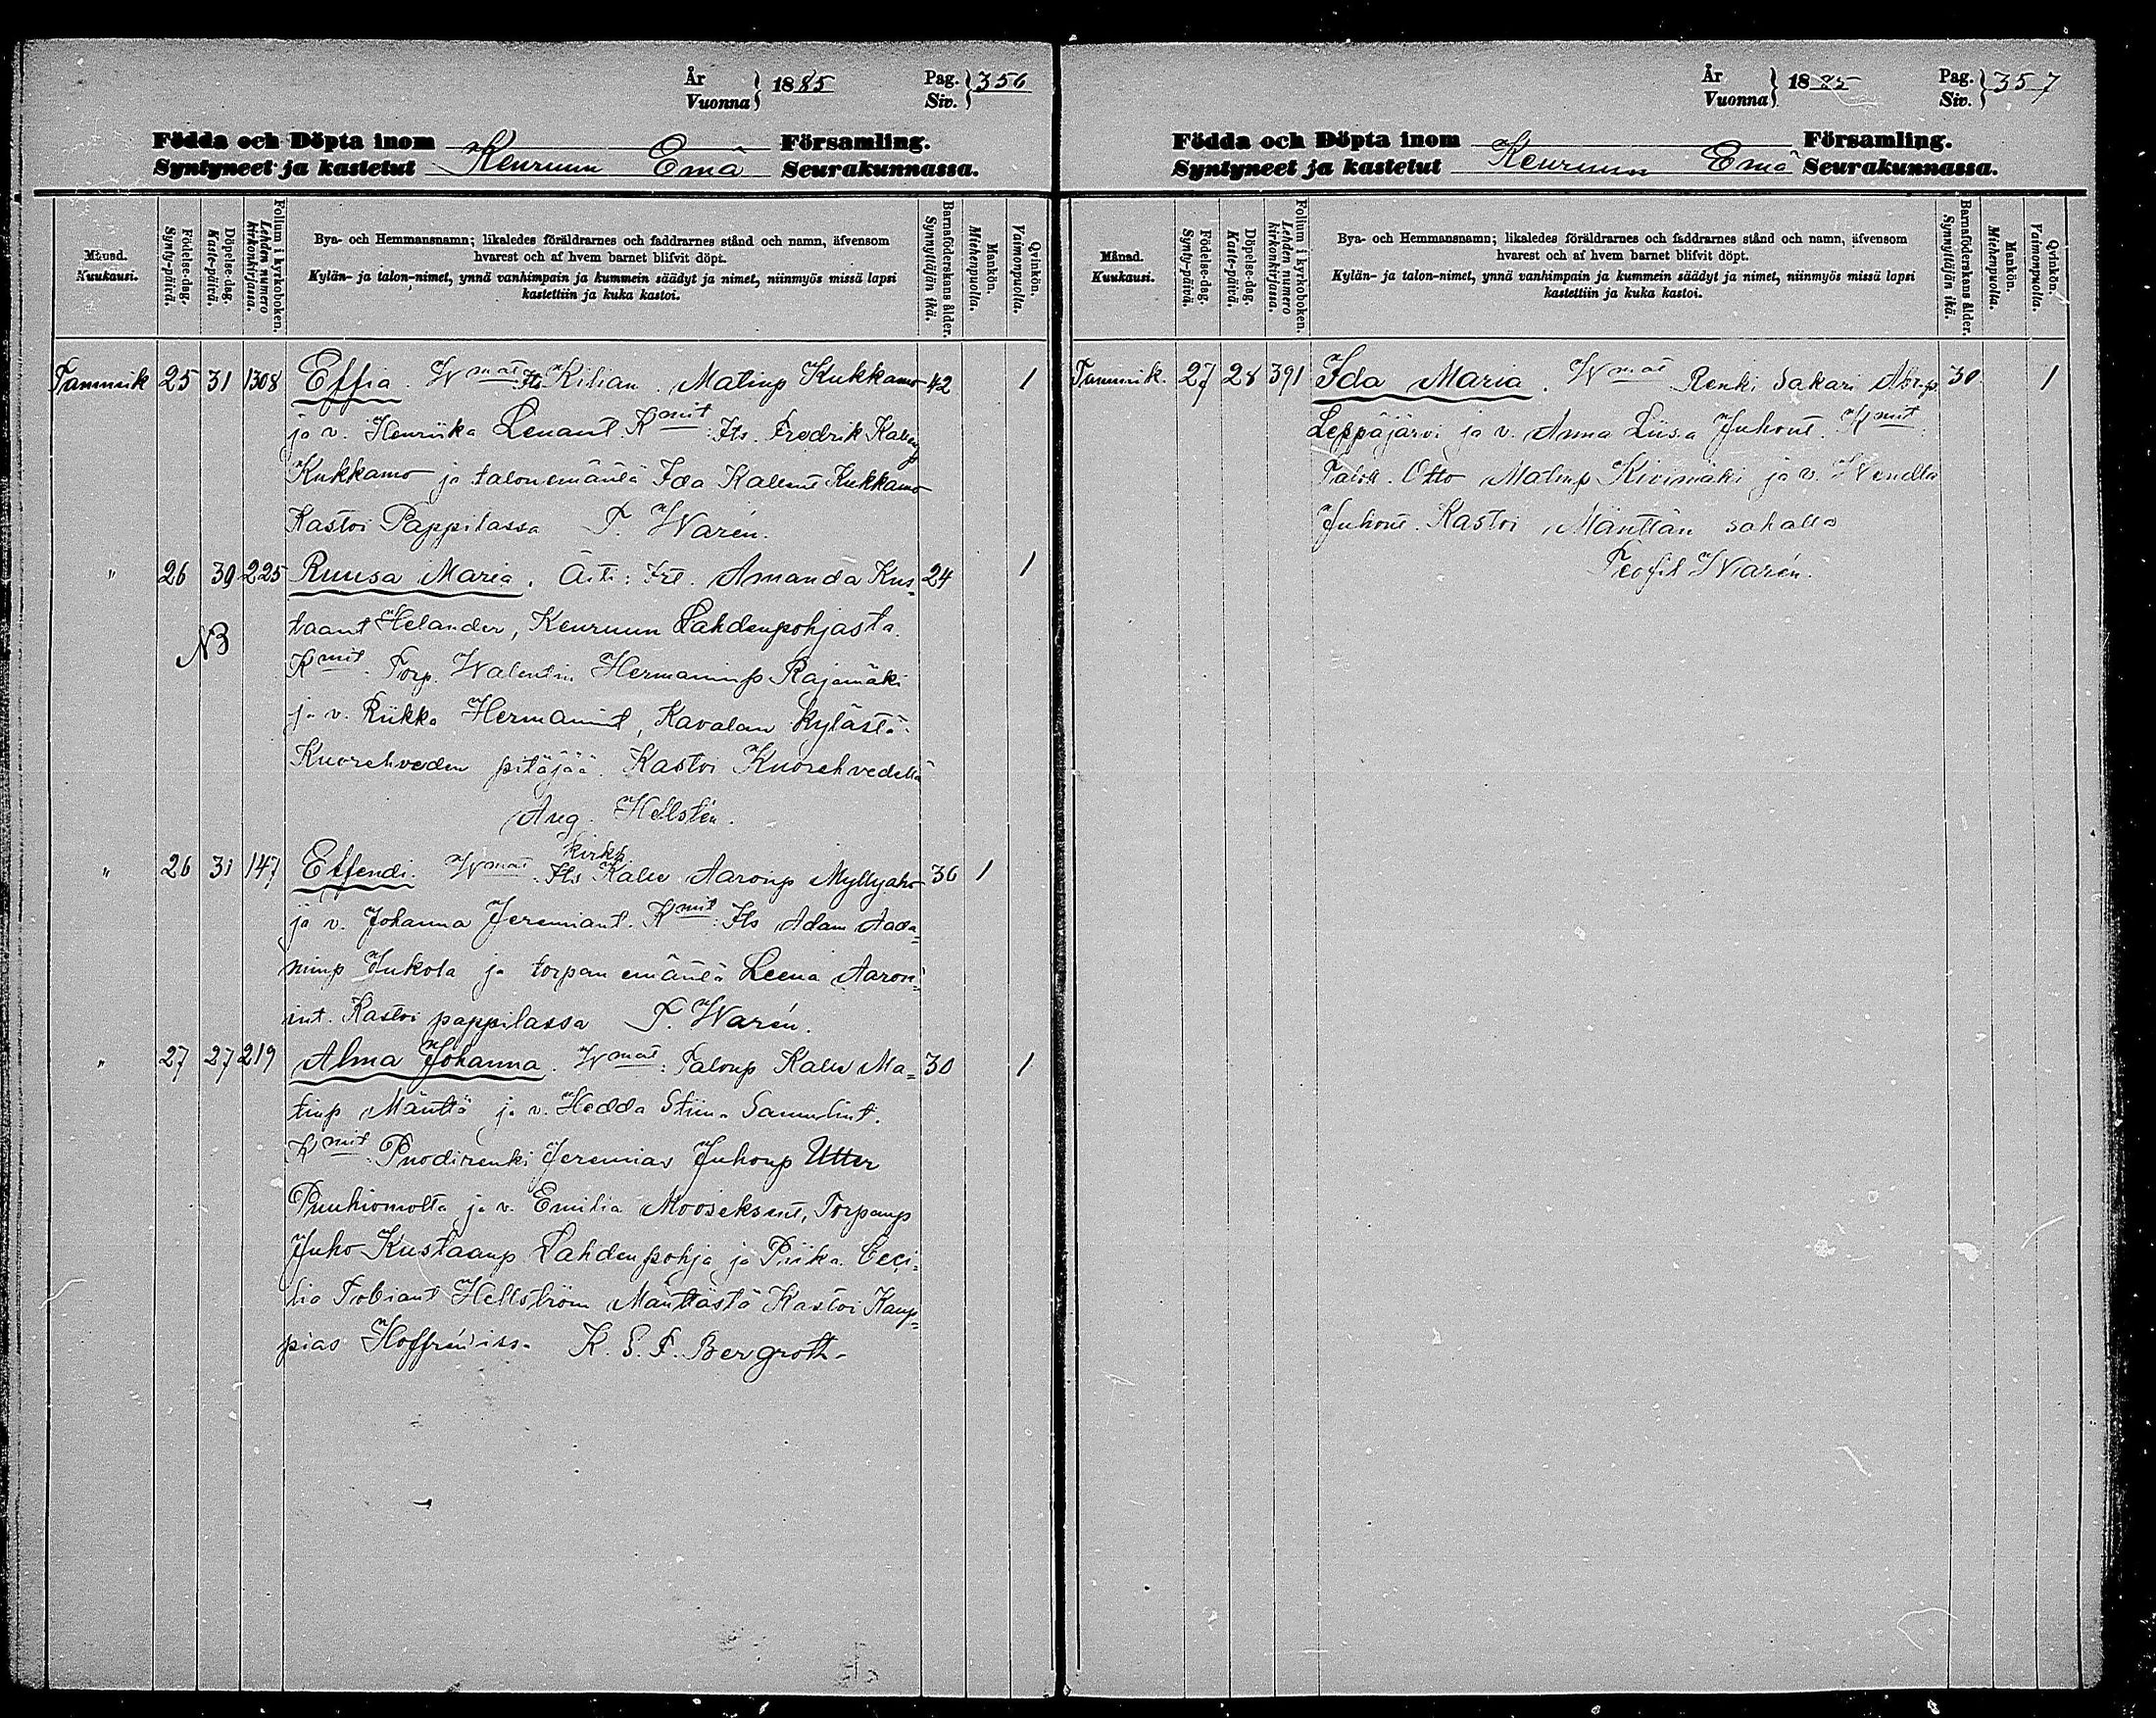 År
Vuonna } 1885
Pag.
Siv. } 356
Födda och Döpta inom Församling.
Syntyneet ja kastetut Keuruun Emä Seurakunnassa.
Månad.
Kuukausi.
Födelse-dag.
Synty-päivä.
Döpelse-dag.
Kaste-päivä.
Folium i kyrkoboken.
Lehden numero
kirkonkirjassa.
Bya- och Hemmansnamn; likaledes föräldrarnes och faddrarnes stånd och namn, äfvensom
hvarest och af hvem barnet blifvit döpt.
Kylän- ja talon-nimet, ynnä vanhimpain ja kummein säädyt ja nimet, niinmyös missä lapsi
kastettiin ja kuka kastoi.
Barnaföderskans ålder.
Synnyttäjän ikä.
Mankön.
Miehenpuolta.
Qvinkön.
Vaimonpuolta.
Tammik 25 31 1308 Effia. Wmat Its Kilian Matinp Kukkamo 42 1
ja v. Henriika Lenant. Kmit: Its. Fredrik Kalenp
Kukkamo ja talonemäntä Ida Kalent Kukkamo
Kastoi Pappilassa T. Warén.
" 26 30 225 Ruusa Maria. Äiti: Itt. Amanda Kus= 24 1
taant Helander, Keuruun Lahdenpohjasta.
NB
Kmit. Torp. Walentin Hermaninp Rajamäki
ja v. Riikka Hermanint, Kavalan kylästä
Kuorehveden pitäjää. Kastoi Kuorehvedellä
Aug. Hellstén.
kirkk
" 26 31 147 Effendi. Wmat. Its Kalle Aaronp Myllyaho 36 1
ja v. Johanna Jeremiant. Kmit: Its Adam Aada=
minp Jukola ja torpan emäntä Leena Aaron=
int. Kastoi pappilassa T. Warén.
" 27 27 219 Alma Johanna. Wmat: Talonp Kalle Ma= 30 1
tinp Mänttä ja v. Hedda Stiina Samulint.
Kmit. Puodirenki Jeremias Juhonp Utter
ja v. Emilia Mooseksent, Torpanp
Juho Kustaanp Lahdenpohja ja Piika Ceci=
lia Tobiant Hellström Mänttästä Kastoi Kaup=
pias Hoffrén'issa K. E. F. Bergroth.
År
Vuonna } 1885
Pag.
Siv. } 357
Födda och Döpta inom Församling.
Syntyneet ja kastetut Keuruun Emä Seurakunnassa.
Månad.
Kuukausi.
Födelse-dag.
Synty-päivä.
Döpelse-dag.
Kaste-päivä.
Folium i kyrkoboken.
Lehden numero
kirkonkirjassa.
Bya- och Hemmansnamn; likaledes föräldrarnes och faddrarnes stånd och namn, äfvensom
hvarest och af hvem barnet blifvit döpt.
Kylän- ja talon-nimet, ynnä vanhimpain ja kummein säädyt ja nimet, niinmyös missä lapsi
kastettiin ja kuka kastoi.
Barnaföderskans ålder.
Synnyttäjän ikä.
Mankön.
Miehenpuolta.
Qvinkön.
Vaimonpuolta.
Tammik. 27 28 391 Ida Maria. Wmat Renki Sakari Abr.p. 30 1
Leppäjärvi ja v. Anna Liisa Juhont. Kmit:
Otto Matinp Kivimäki ja v. Wendla
Juhont. Kastoi Mänttän sahalla
Teofil Warén.